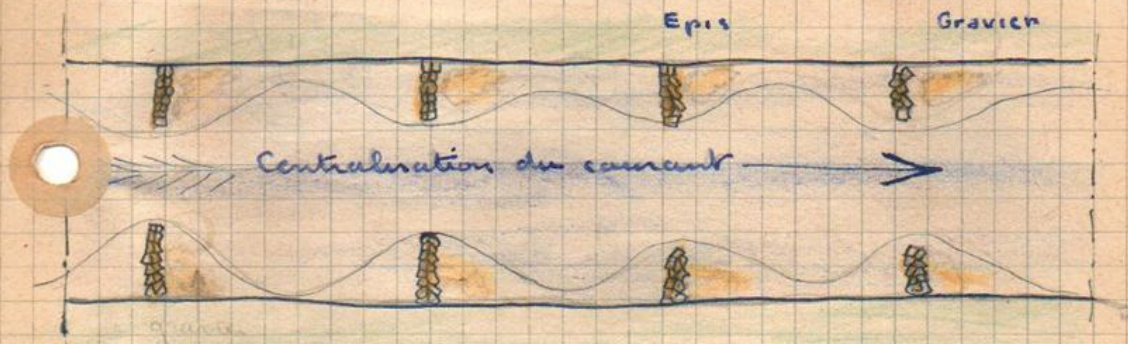 Epis Gravier
Centralisation du courant